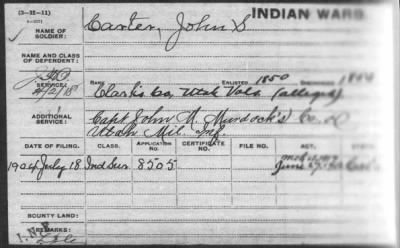 (3-25-11)
INDIAN WARS
NAME OF SOLDIER:
Carter, John S
NAME AND CLASS OF DEPENDENT:
SERVICE:
RANK
ENLISTED 1850
DISCHARGED
Clark's Co, Utah Vols. (alleged)
ADDITIONAL SERVICE:
Capt John M. Murdock's Co.
Utah Mil. Inf.
DATE OF FILING.
CLASS.
APPLICATION NO.
CERTIFICATE NO.
FILE NO.
ACT.
1904 July 18
Ind Sur
8505
June 27
BOUNTY LAND:
REMARKS: